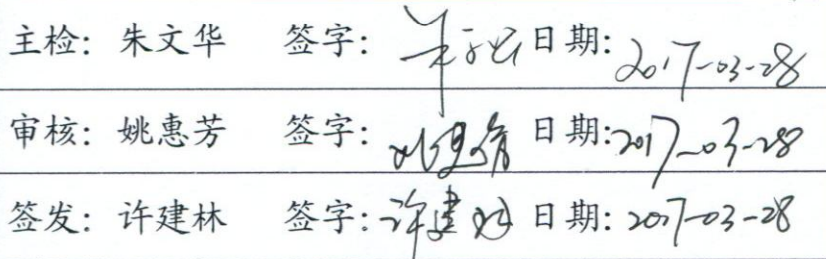 主检：朱文华 签字：朱文华 日期：2017-03-28
审核：姚惠芳 签字：姚惠芳 日期：2017-03-28
签发：许建林 签字：许建林 日期：2017-03-28